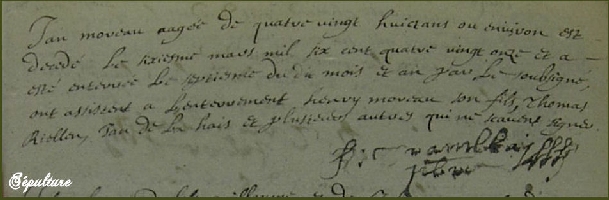 Jan moreau aagée de quatre vingt huict ans ou environ est
decedé Le sixiesme mars mil six cent quatre vingt onze et a
esté enterrée Le septiesme du dit mois et an par Le soubsigné,
ont assistent a Lenterrement, henry moreau son fils, Thomas
Riollon, Jan de La hais et plusieurs autres qui ne scavent signer
ptbre
Sépulture